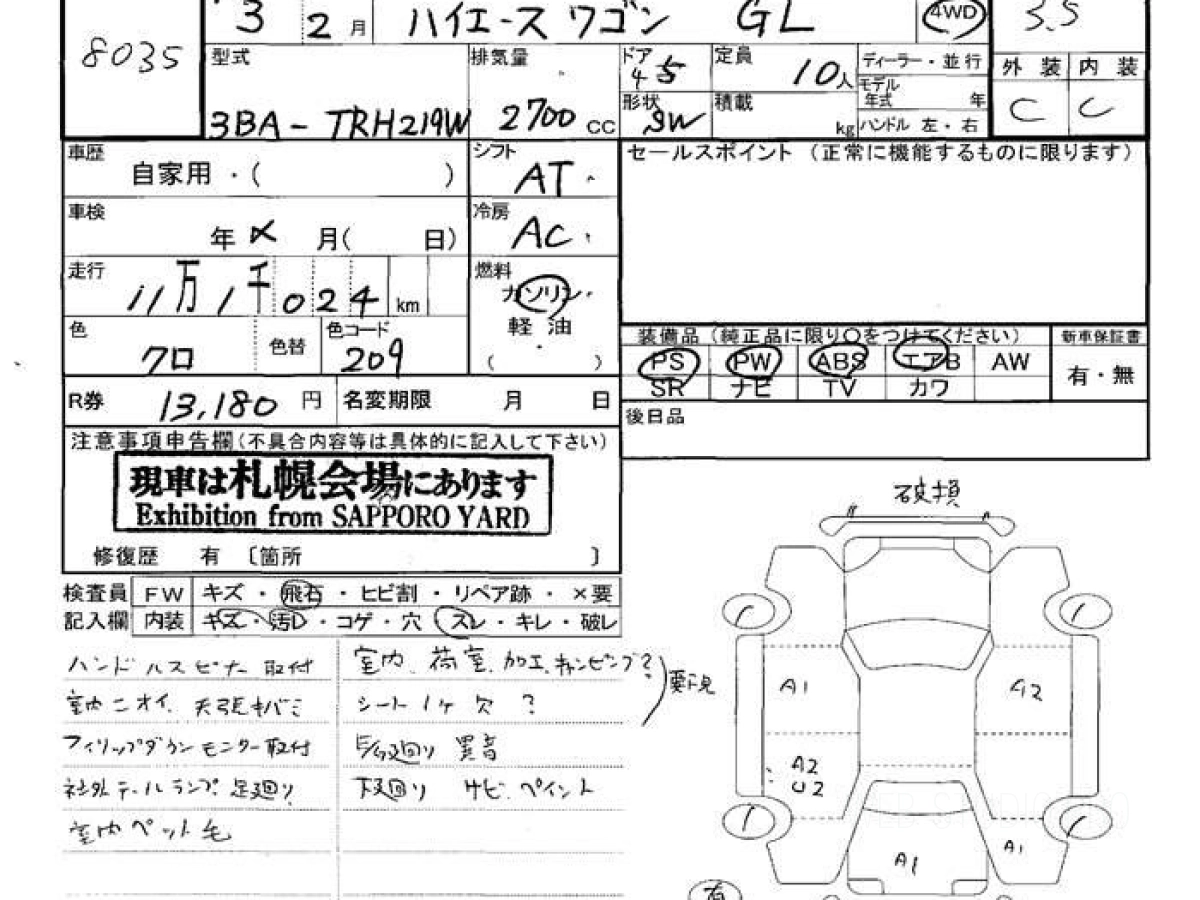 8035
3 2月 ハイエース ワゴン GL 4WD 3.5
型式 3BA-TRH219W
排気量 2700 cc
ドア 4 5
定員 10人
ディーラー・並行
モデル年式 年
ハンドル 左・右
形状 SW
積載 kg
外装 内装
C C
車歴 自家用・( )
シフト AT
セールスポイント (正常に機能するものに限ります)
車検 年 月( 日)
冷房 AC
走行 11万1千024 km
燃料 ガソリン・軽油・( )
色 クロ 色替 色コード 209
装備品 (純正品に限り○をつけてください) 新車保証書
PS PW ABS エアB AW 有・無
SR ナビ TV カワ
R券 13,180 円 名変期限 月 日
後日品
注意事項申告欄(不具合内容等は具体的に記入して下さい)
現車は札幌会場にあります
Exhibition from SAPPORO YARD
修復歴 有 〔箇所 〕
検査員 FW キズ・飛石・ヒビ割・リペア跡・×要
記入欄 内装 キズ・汚レ・コゲ・穴・スレ・キレ・破レ
ハンドルスピナー取付
室内ニオイ. 天張キバミ
フィリップダウンモニター取付
社外テールランプ. 足廻り
室内ペット毛
室内、荷室、加工、キャンピング?
シート1ヶ欠 ?
要下見
廻り 異音
下廻り サビ.ペイント
破損
A1
A2
A2
U2
A1
A1
有